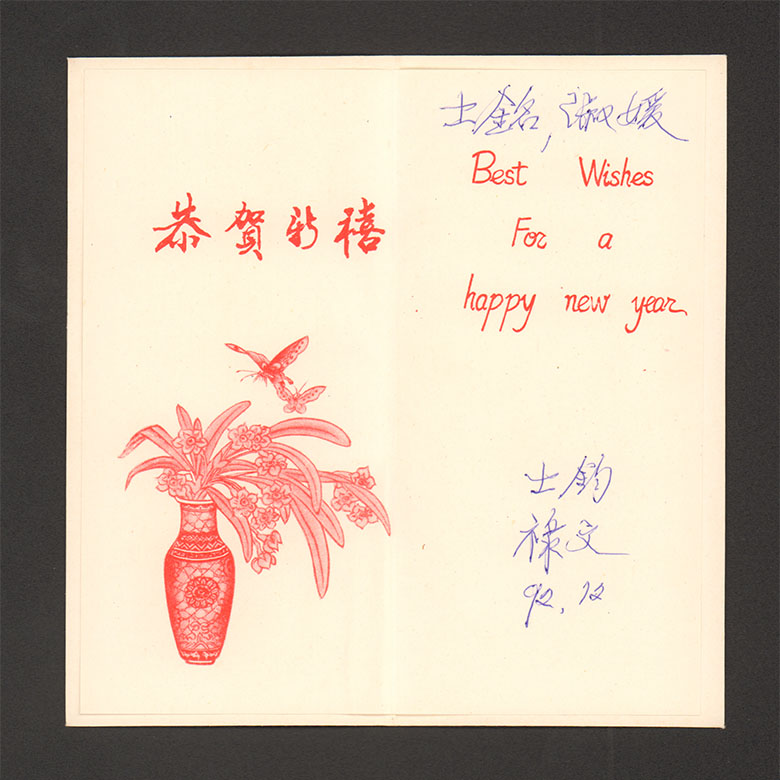 恭賀新禧
士銘,淑媛
Best Wishes
For a
happy new year
士鈞
祿文
92.12